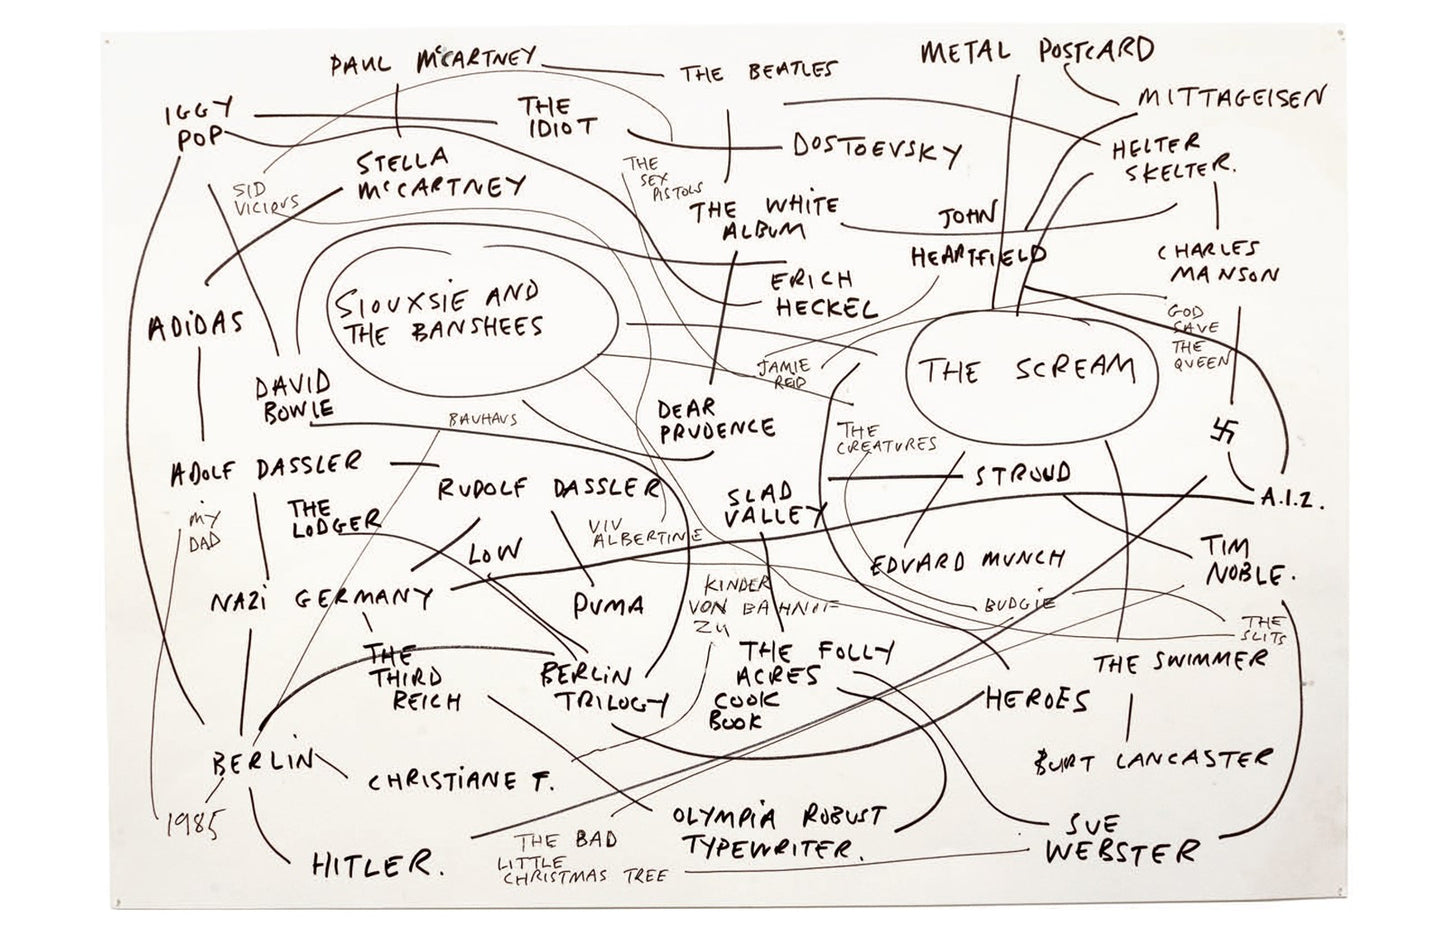 PAUL McCARTNEY
THE BEATLES
METAL POSTCARD
MITTAGEISEN
IGGY
POP
THE
IDIOT
DOSTOEVSKY
HELTER
SKELTER.
STELLA
McCARTNEY
SID
VICIOUS
THE
SEX
PISTOLS
THE WHITE
ALBUM
JOHN
HEARTFIELD
CHARLES
MANSON
ERICH
HECKEL
SIOUXSIE AND
THE BANSHEES
ADIDAS
GOD
SAVE
THE
QUEEN
THE SCREAM
JAMIE
REID
DAVID
BOWIE
BAUHAUS
DEAR
PRUDENCE
THE
CREATURES
卐
ADOLF DASSLER
RUDOLF DASSLER
STROUD
SLAD
VALLEY
A.I.Z.
MY
DAD
THE
LODGER
VIV
ALBERTINE
LOW
EDVARD MUNCH
TIM
NOBLE.
NAZI GERMANY
PUMA
KINDER
VON BAHNHOF
ZU
BUDGIE
THE
SLITS
THE
THIRD
REICH
BERLIN
TRILOGY
THE FOLLY
ACRES
COOK
BOOK
THE SWIMMER
HEROES
BERLIN
CHRISTIANE F.
BURT LANCASTER
1985
OLYMPIA ROBUST
TYPEWRITER.
SUE
WEBSTER
HITLER.
THE BAD
LITTLE
CHRISTMAS TREE